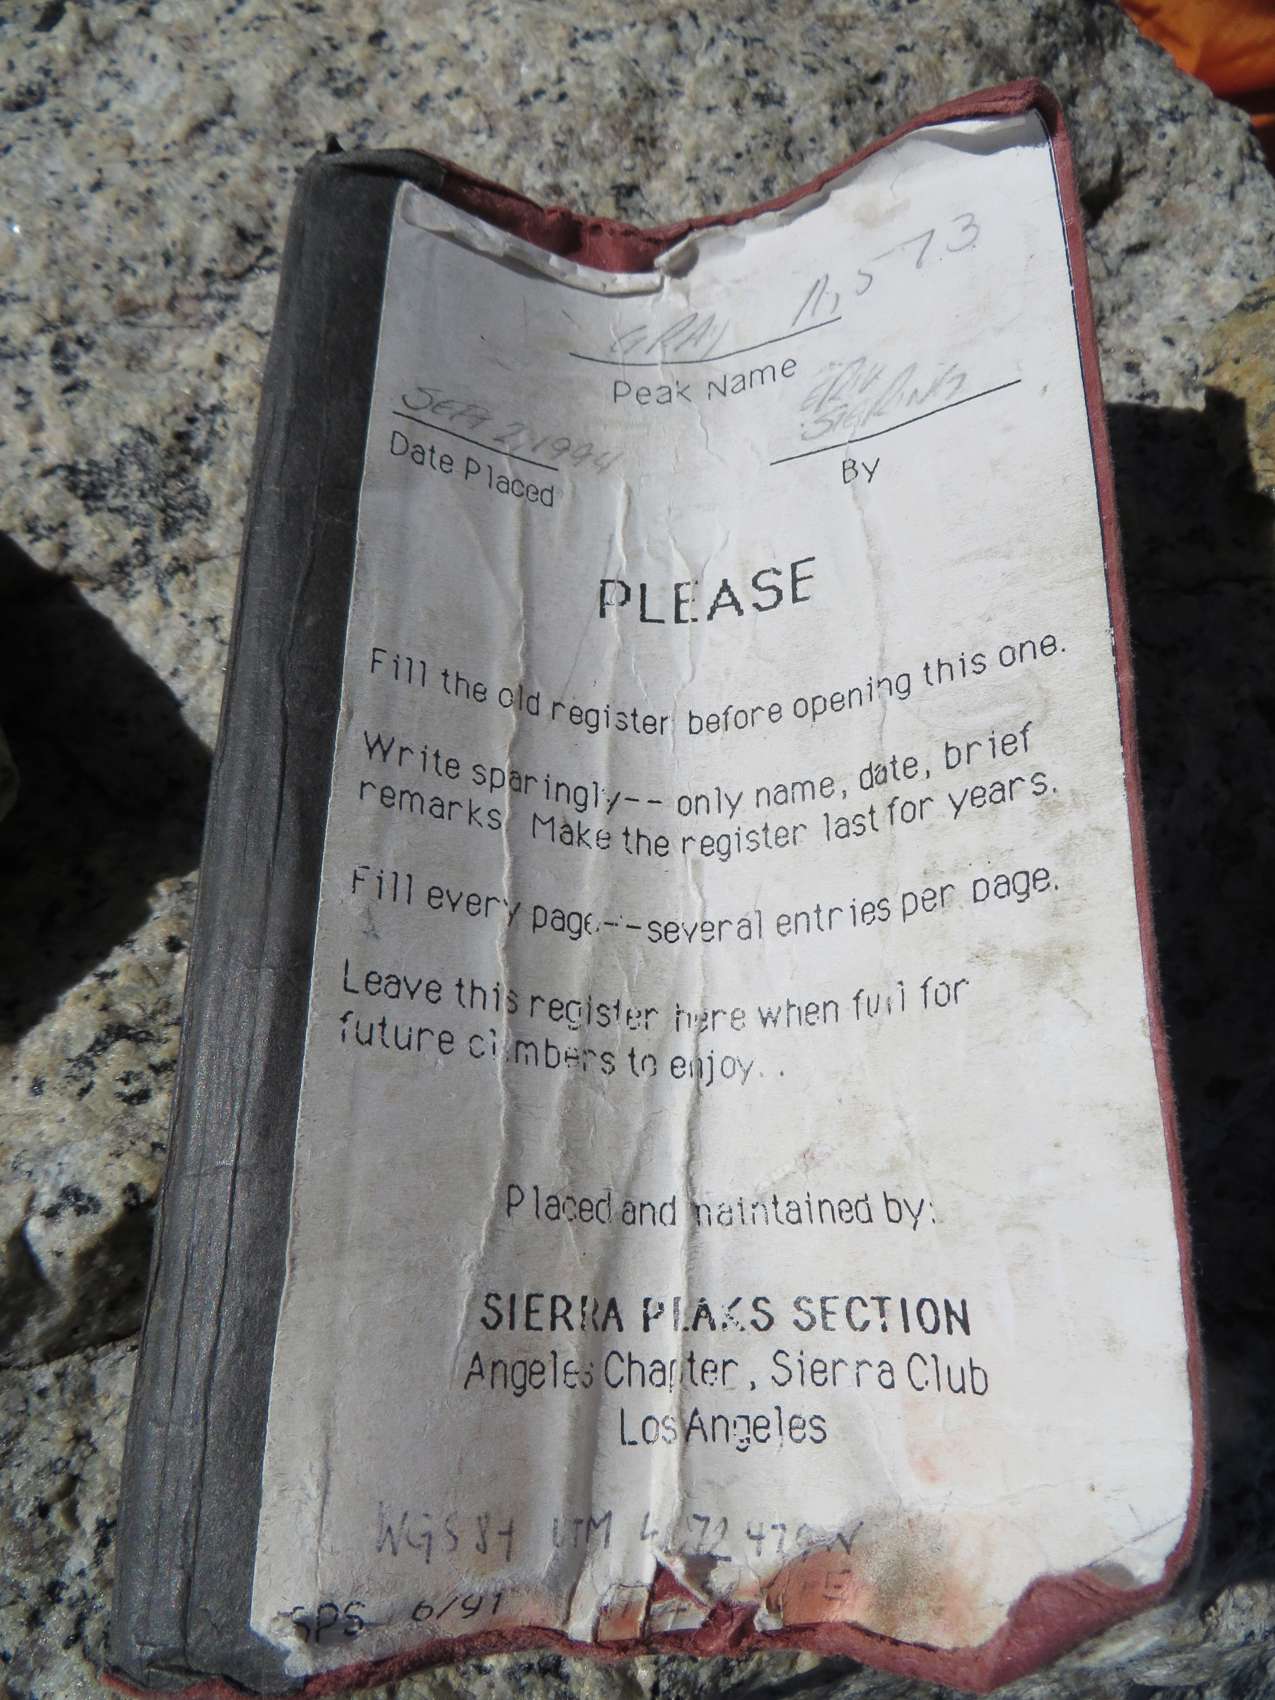 GRAY 11,573
Peak Name
SEPT 2, 1994
Date Placed
By
PLEASE
Fill the old register before opening this one.
Write sparingly-- only name, date, brief
remarks. Make the register last for years.
Fill every page--several entries per page.
Leave this register here when full for
future climbers to enjoy..
Placed and maintained by:
SIERRA PEAKS SECTION
Angeles Chapter, Sierra Club
Los Angeles
WGS 84 UTM
SPS 6/91